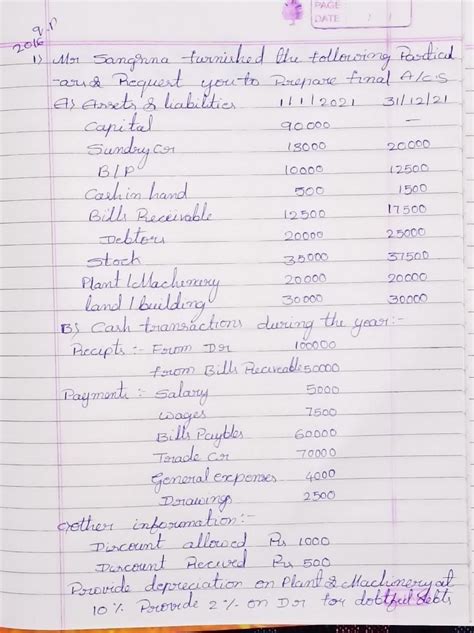 PAGE
DATE
Q.P
2016
1) Mr Sanghna furnished the following Particul
-ars & Request you to Prepare final A/CS
A) Assets & liabilities 1/1/2021 31/12/21
Capital 90000 —
Sundry Cr 18000 20000
B/P 10000 12500
Cash in hand 500 1500
Bills Receivable 12500 17500
Debtors 20000 25000
Stock 35000 37500
Plant / Machinery 20000 20000
land / building 30000 30000
B) Cash transactions during the year:-
Receipts :- From Dr 100000
from Bills Receiveable 50000
Payment :- Salary 5000
wages 7500
Bills Paybles 60000
Trade Cr 70000
General expenses 4000
Drawings 2500
c) other information:-
Discount allowed Rs 1000
Discount Recived Rs 500
Porovide depreciation on Plant & Machinery at
10% Porovide 2% on Dor for dobtful debts